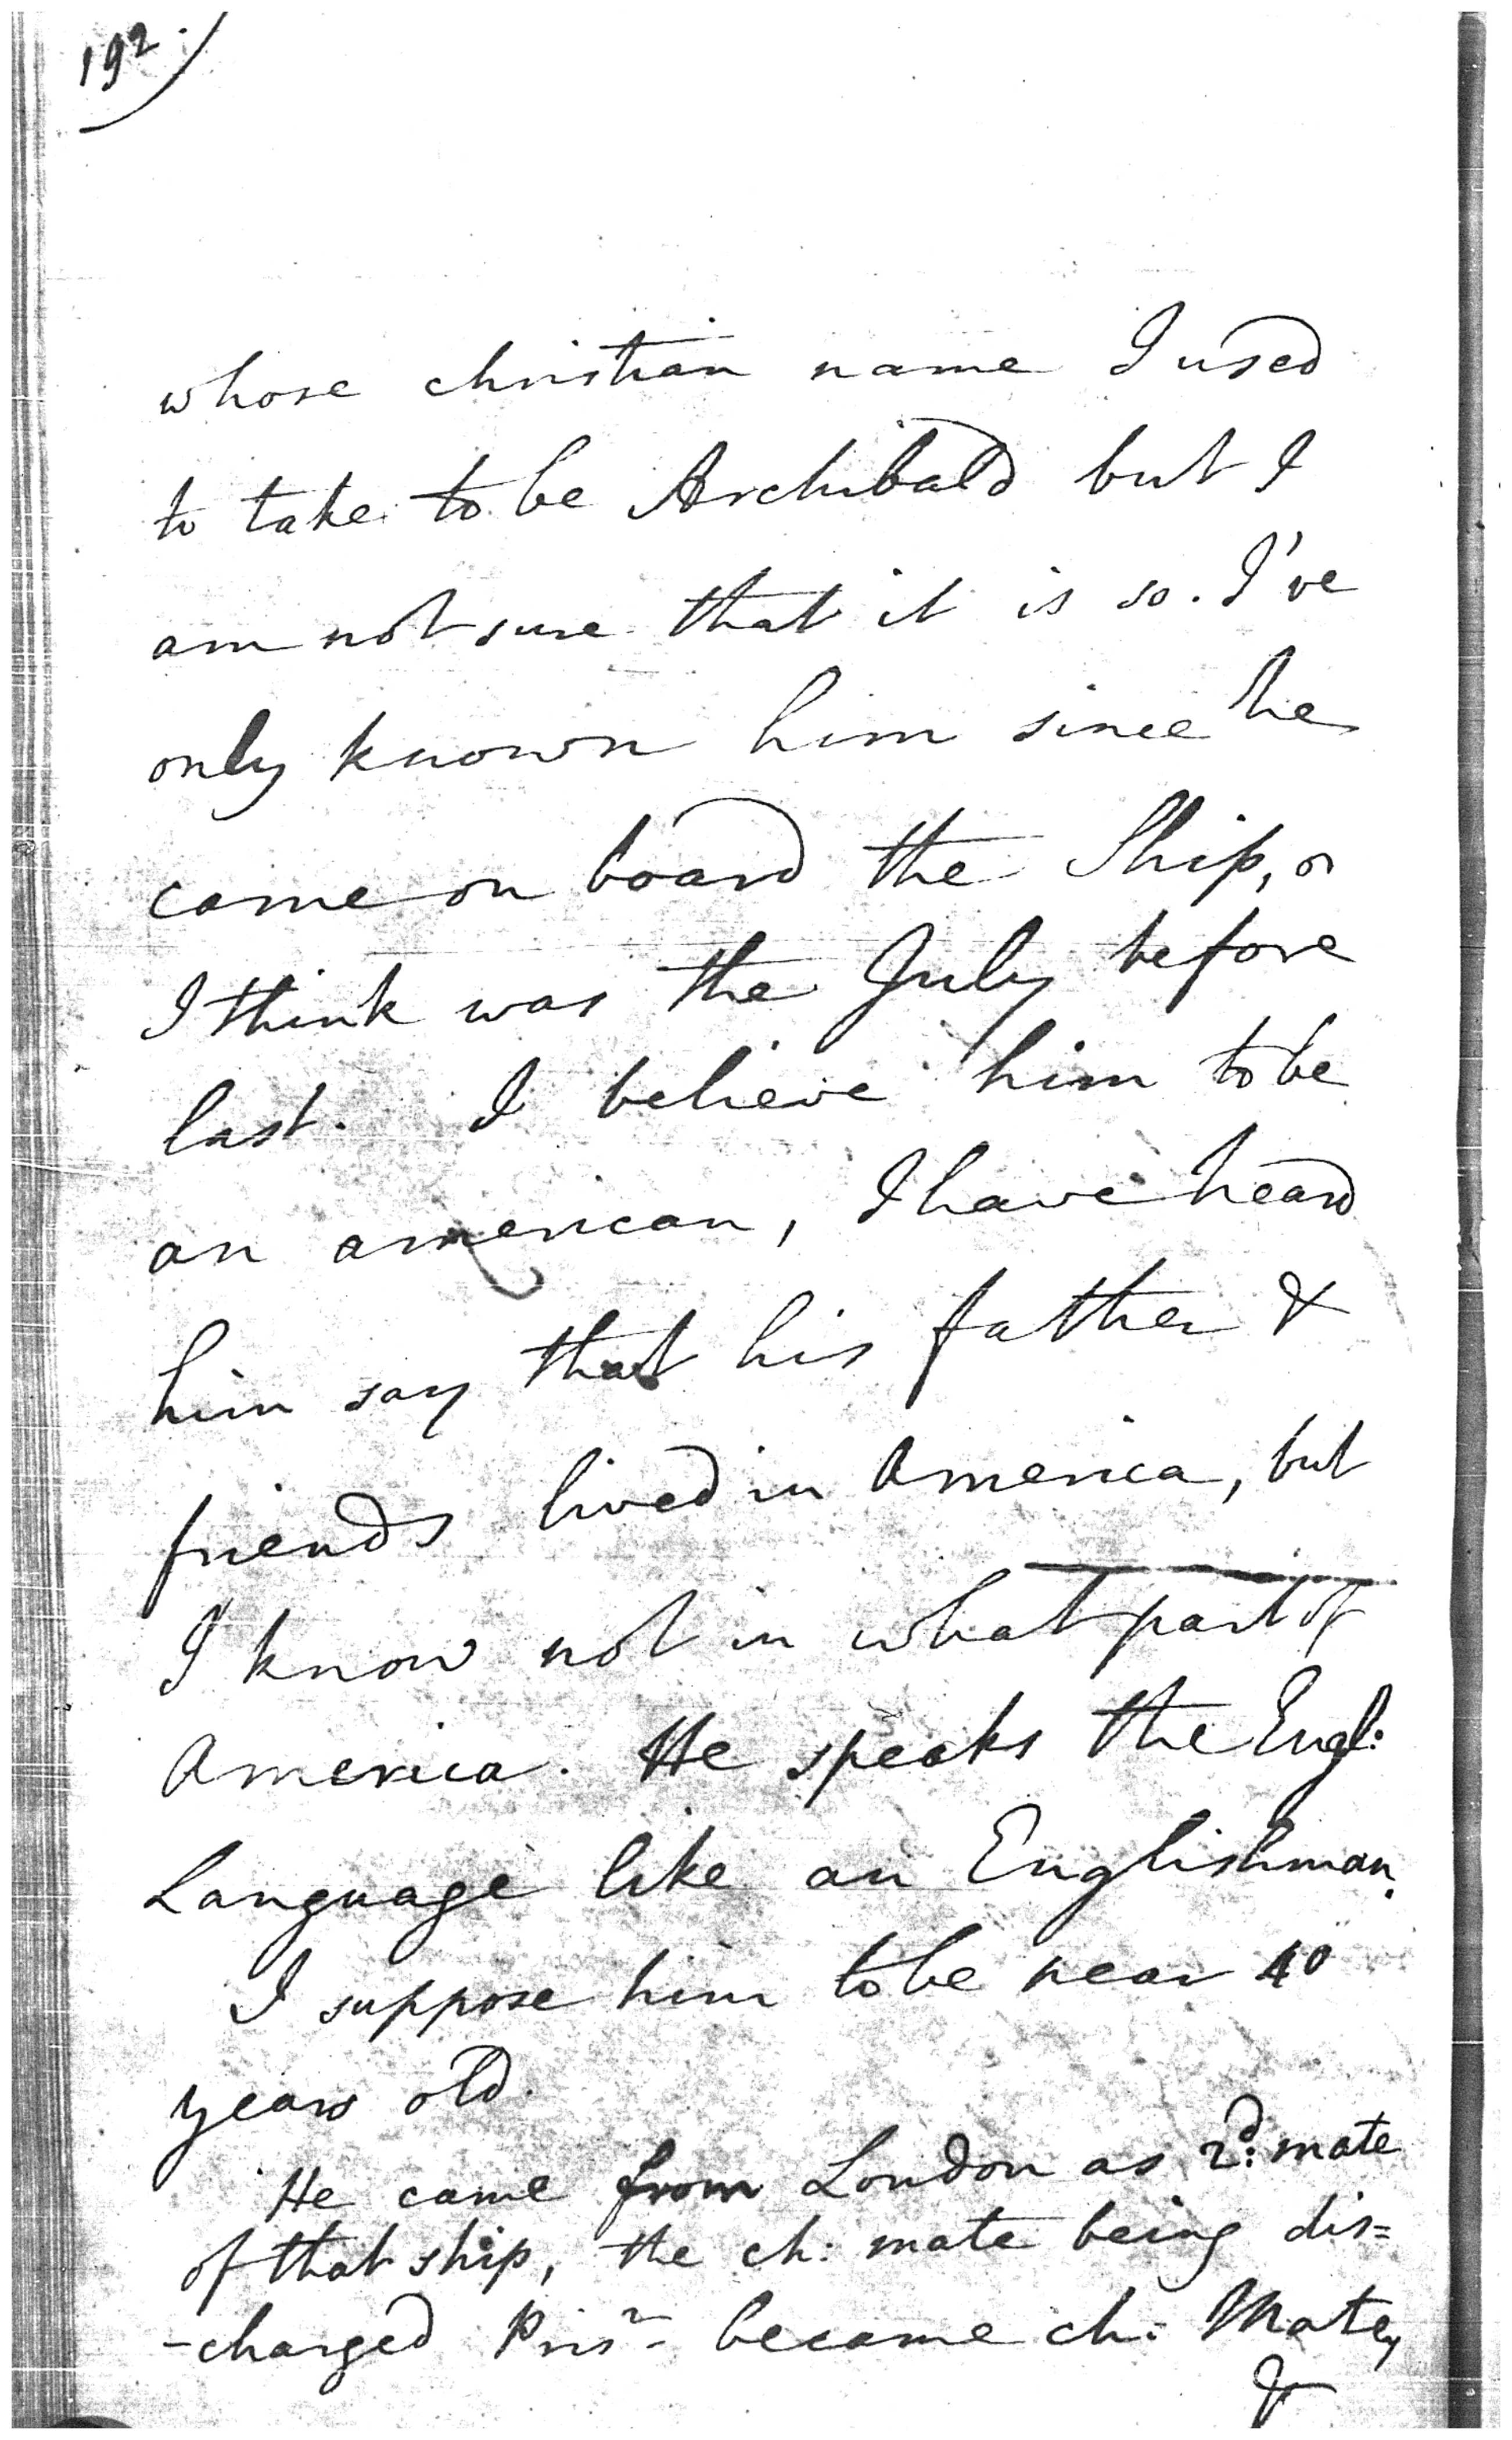 192.
whose christian name I used
to take to be Archibald but I
am not sure that it is so. I've
only known him since he
came on board the Ship, or
I think was the July before
last. I believe him to be
an american, I have heard
him say that his father &
friends lived in America, but
I know not in what part of
America. He speaks the Engl:
Language like an Englishman.
I suppose him to be near 40
years old.
He came from London as 2d: mate
of that ship, the ch: mate being dis=
-charged Prisr became ch: Mate,
&